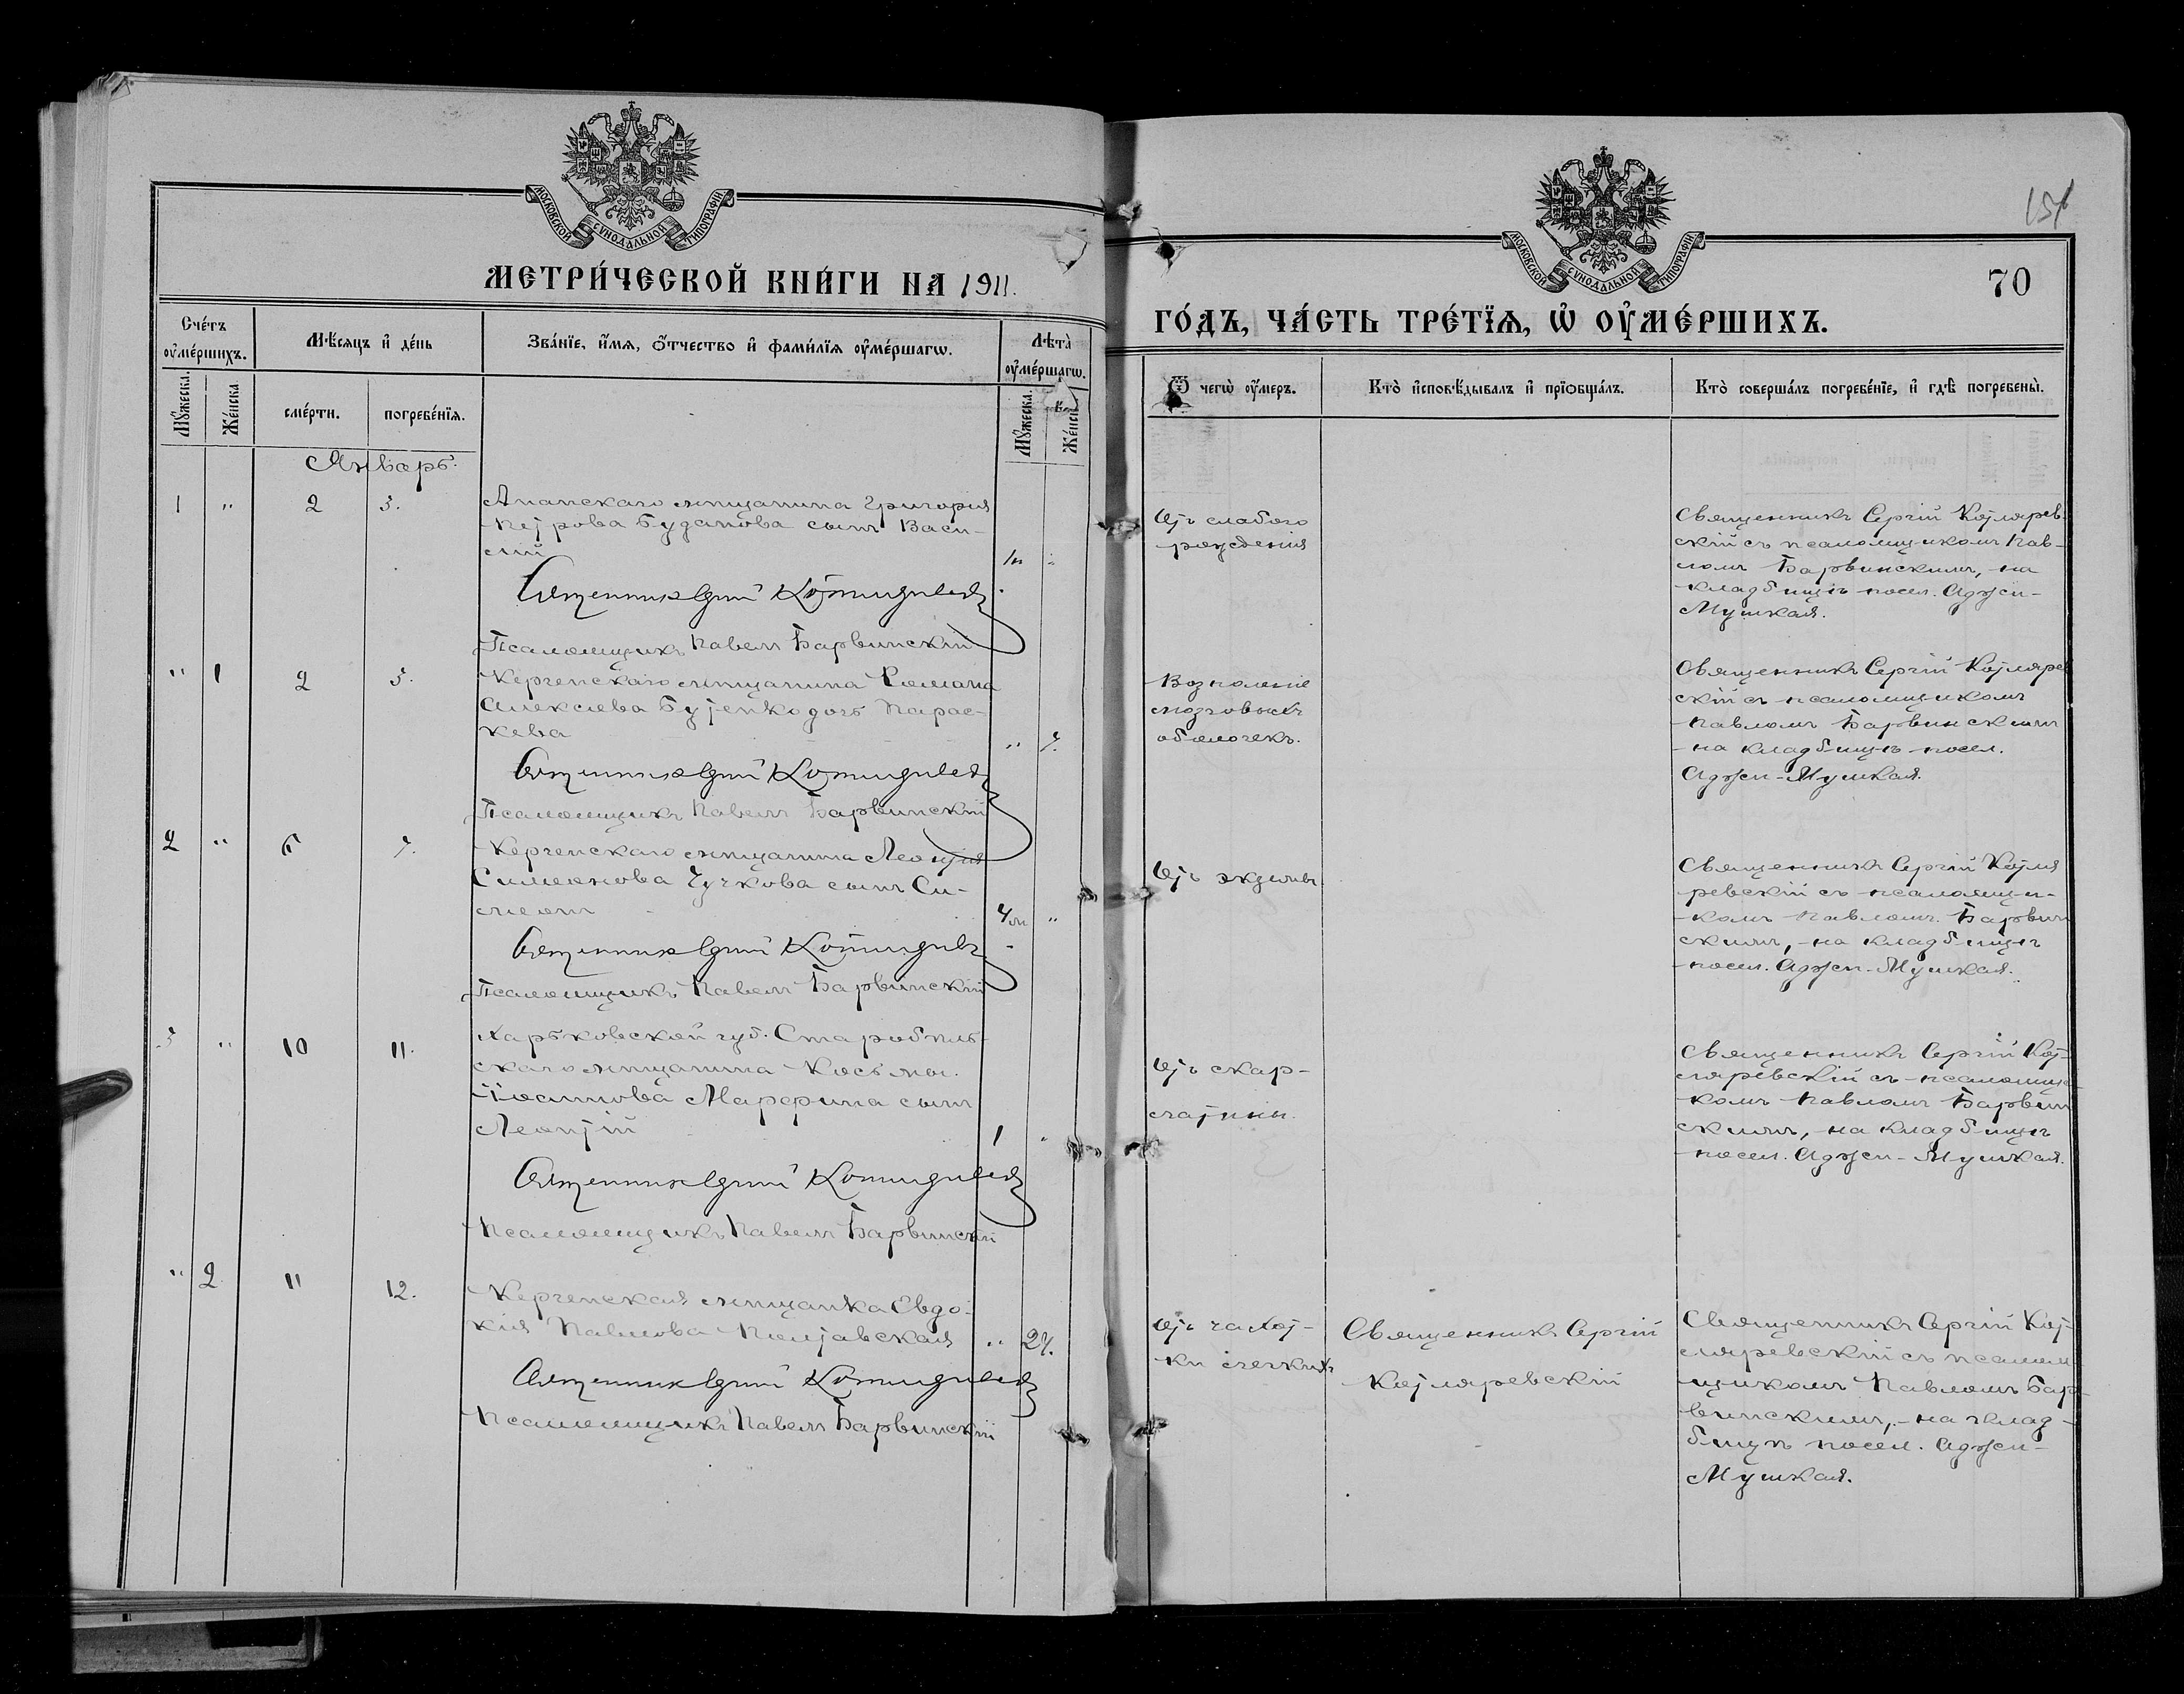 МОСКОВСКОЙ СѴНОДАЛЬНОЙ ТИПОГРАФІИ.
МЕТРИ́ЧЕСКОЙ КНИ́ГИ НА 1911.
Сче́тъ оу҆ме́ршихъ.
Мѣ́сяцъ и҆ де́нь
Зва́нїе, и҆́мѧ, ѻ҆́тчество и҆ фами́лїѧ оу҆ме́ршагѡ.
Лѣта̀ оу҆ме́ршагѡ.
Мꙋ́жеска.
Же́нска.
сме́рти.
погребе́нїѧ.
Мꙋ́жеска.
Же́нска.
Январь.
1 " 2 3.
Анапскаго мѣщанина Григорія
Петрова Буданова сынъ Васи-
лій
Священникъ Сергій Котляревскій
Псаломщикъ Павелъ Барвинскій
" 1 2 3.
Керченскаго мѣщанина Романа
Алексѣева Бутенко дочь Парас-
кева
" 7.
Священникъ Сергій Котляревскій
Псаломщикъ Павелъ Барвинскій
2 " 6 7.
Керченскаго мѣщанина Леонтія
Симеонова Чучкова сынъ Си-
меонъ
4 м "
Священникъ Сергій Котляревскій
Псаломщикъ Павелъ Барвинскій
3 " 10 11.
Харьковской губ. Старобѣль-
скаго мѣщанина Косьмы
Іоаннова Марфина сынъ
Леонтій
1 "
Священникъ Сергій Котляревскій
Псаломщикъ Павелъ Барвинскій
" 2 11 12.
Керченская мѣщанка Евдо-
кія Павлова Полтавская " 27.
Священникъ Сергій Котляревскій
Псаломщикъ Павелъ Барвинскій
МОСКОВСКОЙ СѴНОДАЛЬНОЙ ТИПОГРАФІИ.
70
ГО́ДЪ, ЧА́СТЬ ТРЕ́ТЇѦ, Ѡ҆ ОУ҆МЕ́РШИХЪ.
Ѿ чегѡ̀ оу҆́меръ.
Кто̀ и҆сповѣ́дывалъ и҆ прїѡбща́лъ.
Кто̀ соверша́лъ погребе́нїе, и҆ гдѣ̀ погребены̀.
Отъ слабого
рожденія
Священникъ Сергій Котлярев-
скій съ псаломщикомъ Пав-
ломъ Барвинскимъ, на
кладбищѣ посел. Аджи-
Мушкая.
Воспаленіе
мозговыхъ
оболочекъ.
Священникъ Сергій Котлярев
скій съ псаломщикомъ
Павломъ Барвинскимъ
на кладбищѣ посел.
Аджи-Мушкая.
Отъ экземы
Священникъ Сергій Котля
ревскій съ псаломщи-
комъ Павломъ Барвин
скимъ, на кладбищѣ
посел. Аджи-Мушкая.
Отъ скар-
латины.
Священникъ Сергій Кот-
ляревскій съ псаломщи-
комъ Павломъ Барвин
скимъ, на кладбищѣ
посел. Аджи-Мушкая.
Отъ чахот-
ки легкихъ
Священникъ Сергій
Котляревскій
Священникъ Сергій Кот-
ляревскій съ псалом
щикомъ Павломъ Бар-
винскимъ, на клад-
бищѣ посел. Аджи-
Мушкая.